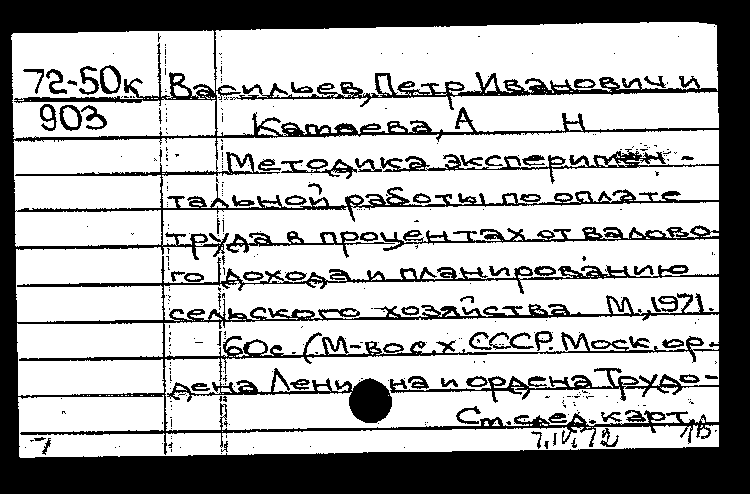 72-50к Васильев, Петр Иванович и
903 Катаева, А Н
Методика эксперимен-
тальной работы по оплате
труда в процентах от валово-
го дохода и планированию
сельского хозяйства. М., 1971.
60с. (М-во с.х. СССР. Моск. ор-
дена Ленина и ордена Трудо-
См. след. карт.
7.IV.72 1В